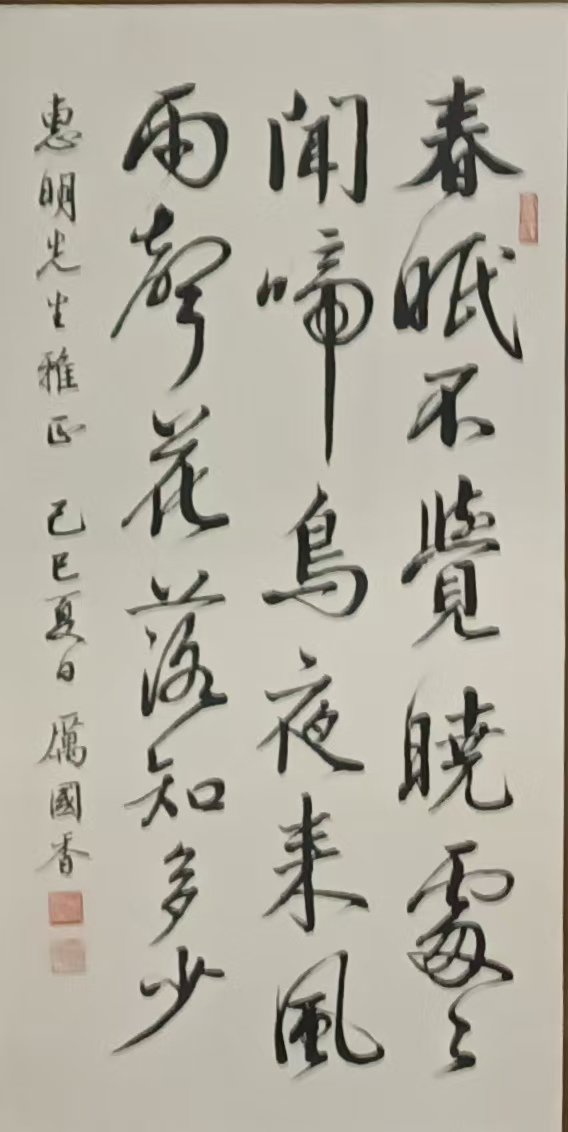 春眠不覺曉處々
聞啼鳥夜来風
雨聲花落知多少
惠明先生雅正 己巳夏日 厲國香